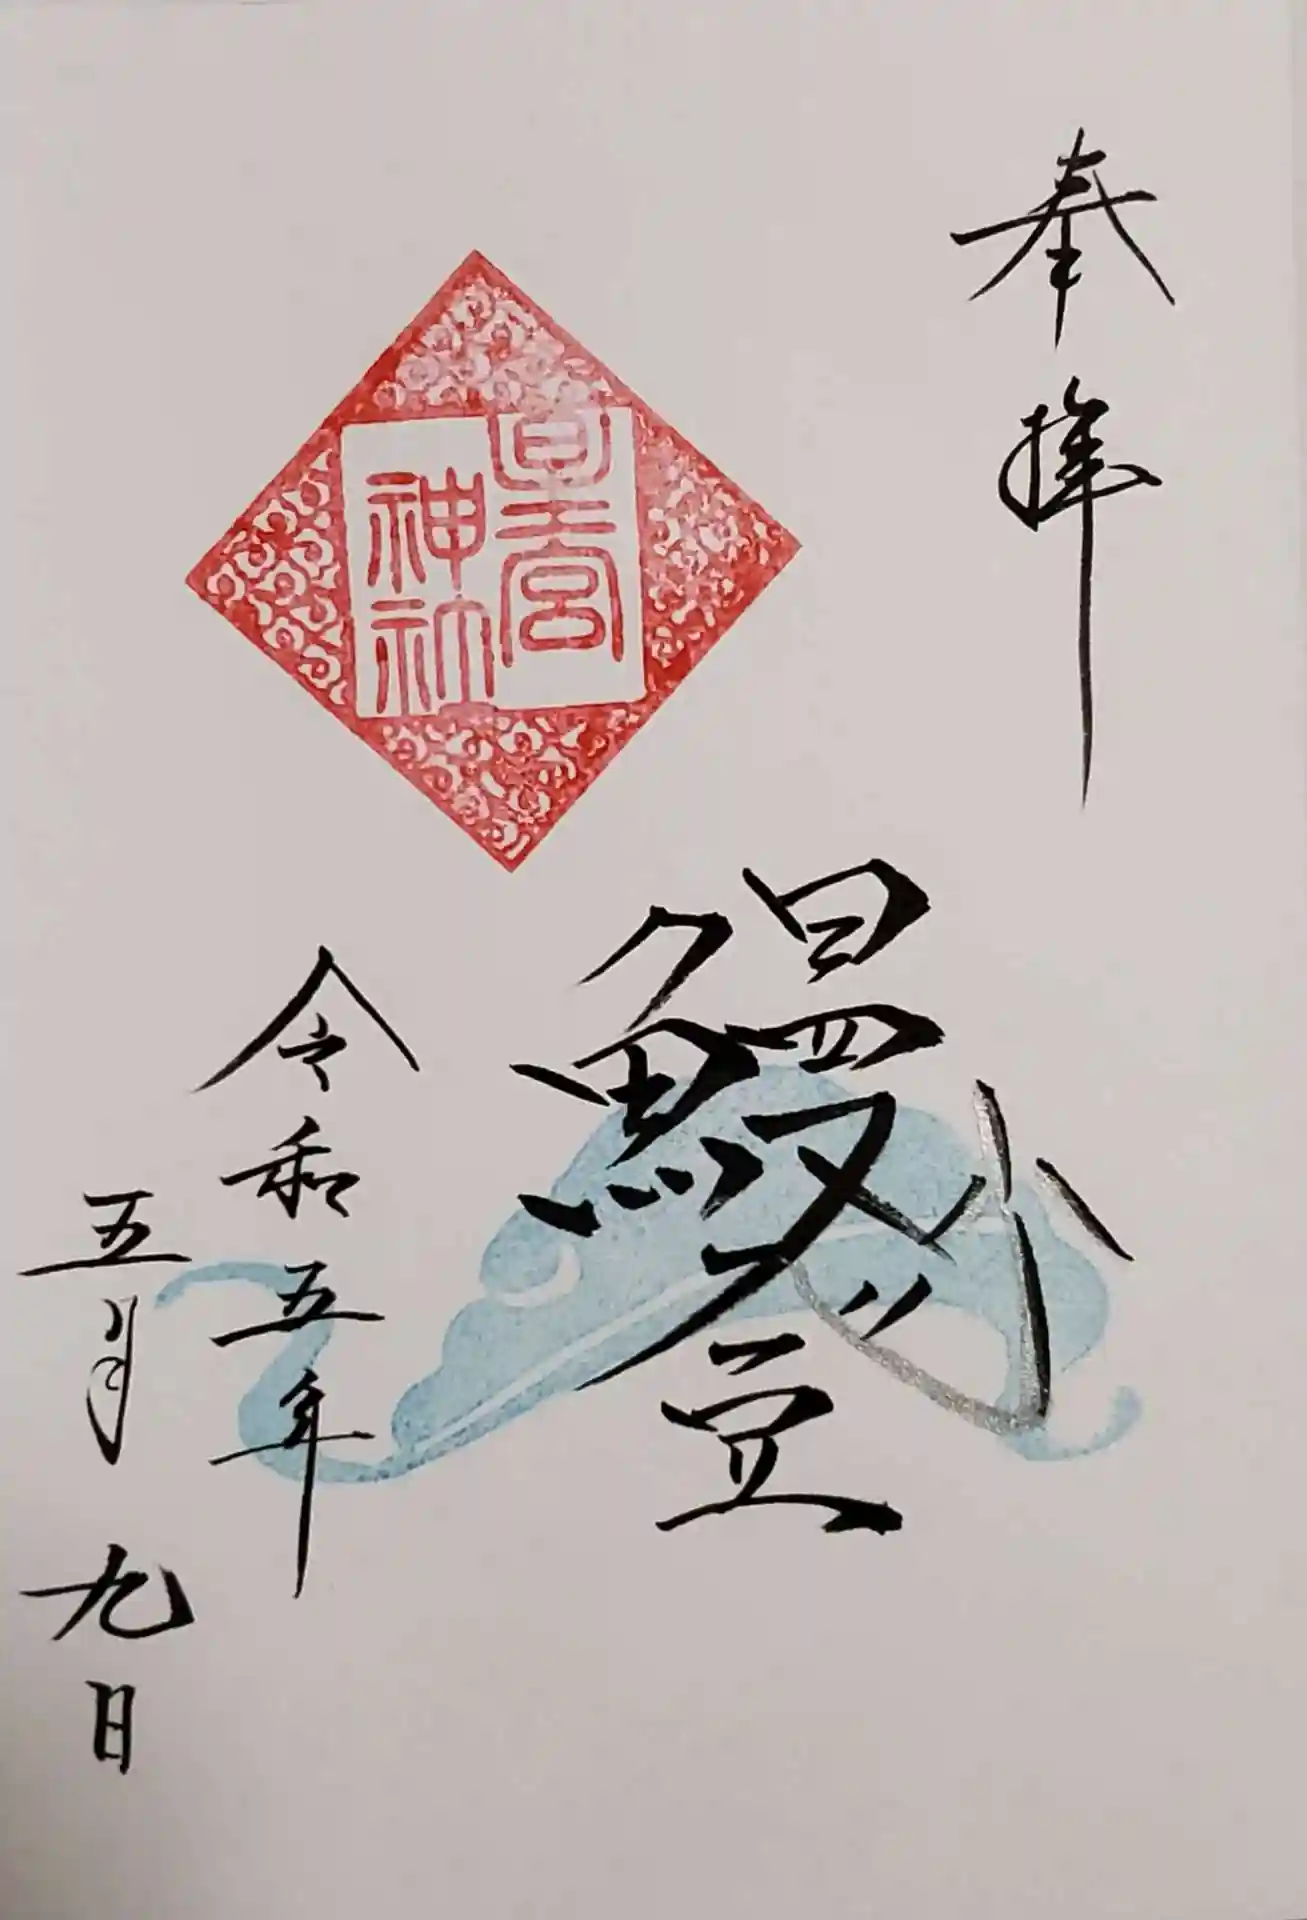 奉拝
皇宮
神社
鰻登
令和五年
五月九日